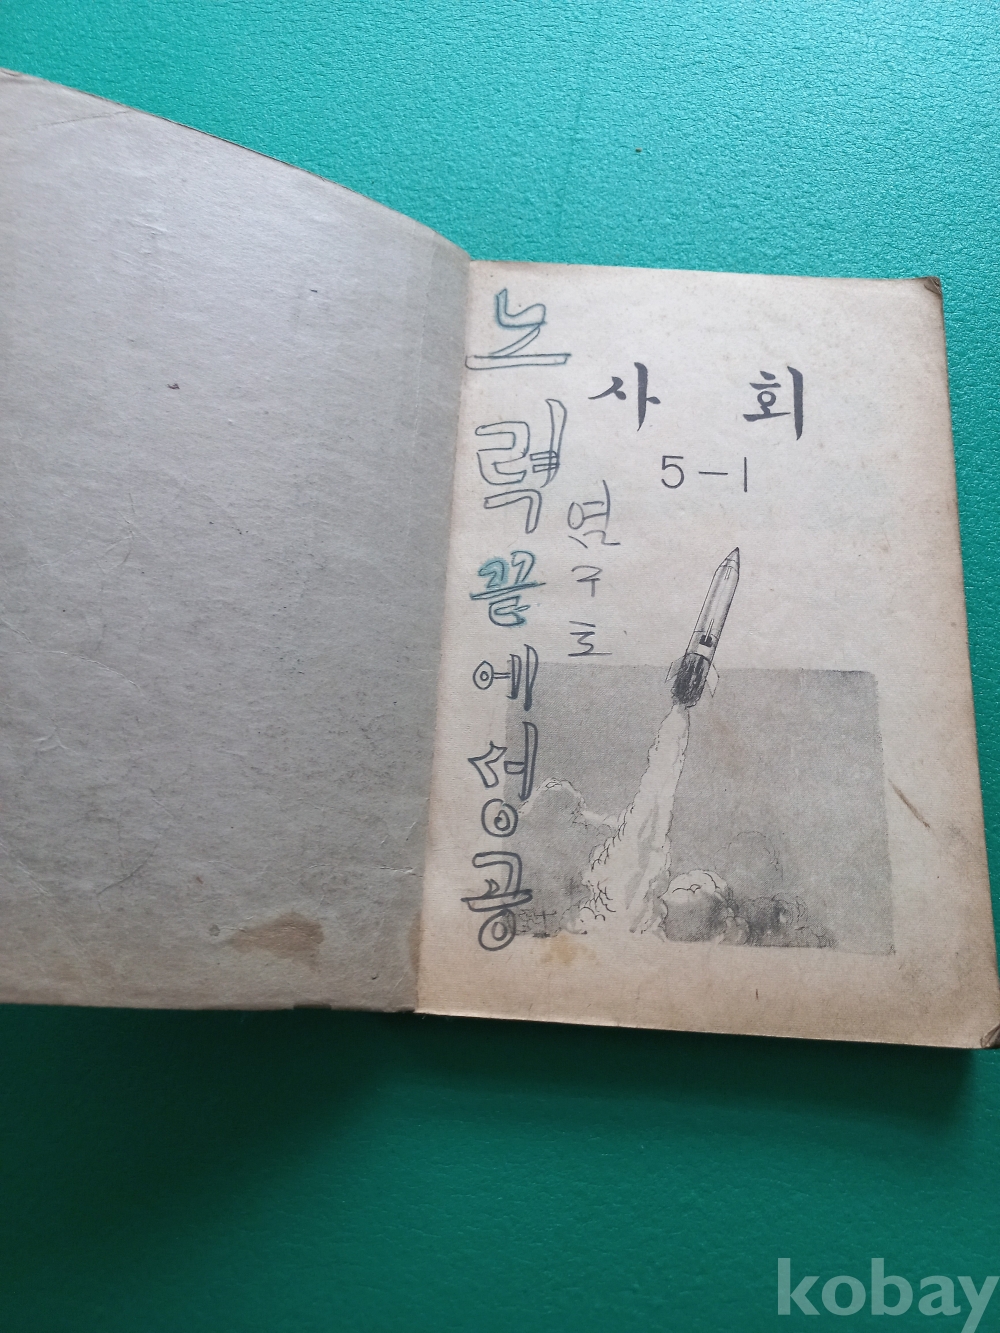 사 회
5-1
노력끝에성공
염구호
kobay